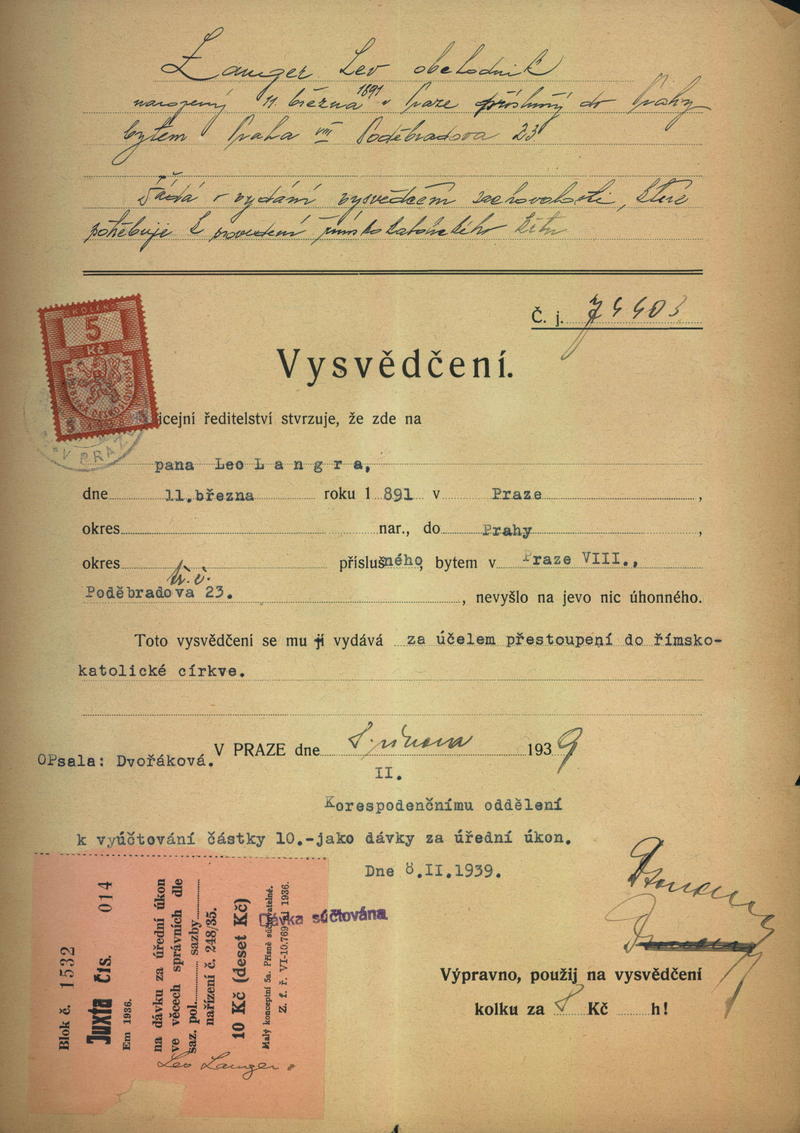 Langer Lev obchodník
narozený 11 března 1891 v Praze příslušný do Prahy
bytem Praha VIII Poděbradova 23
žádá o vydání vysvědčení zachovalosti, které
potřebuje k provedení římskokatolického křtu
Č. j. 74403
KOLEK
5
Kč
V PRAZE
Vysvědčení.
icejní ředitelství stvrzuje, že zde na
pana Leo L a n g r a,
dne 11.března roku 1 891 v Praze ,
okres nar., do Prahy ,
okres příslušného, bytem v Praze VIII.,
Poděbradova 23. , nevyšlo na jevo nic úhonného.
Toto vysvědčení se mu jí vydává za účelem přestoupení do římsko-
katolické církve.
V PRAZE dne 8. února 1939
Opsala: Dvořáková.
II.
Korespodenčnímu oddělení
k vyúčtování částky 10.-jako dávky za úřední úkon.
Dne 8.II.1939.
Dávka súčtována
Blok č. 1532
Juxta čís. 014
Em 1936.
na dávku za úřední úkon
ve věcech správních dle
saz. pol. sazby
nařízení č. 248/35.
10 Kč (deset Kč)
Malý konceptní 5a. Přísně súčtovatelné.
Z. f. ř. VI-10.769/1 1936.
Leo Langer
Výpravno, použij na vysvědčení
kolku za 8 Kč h!